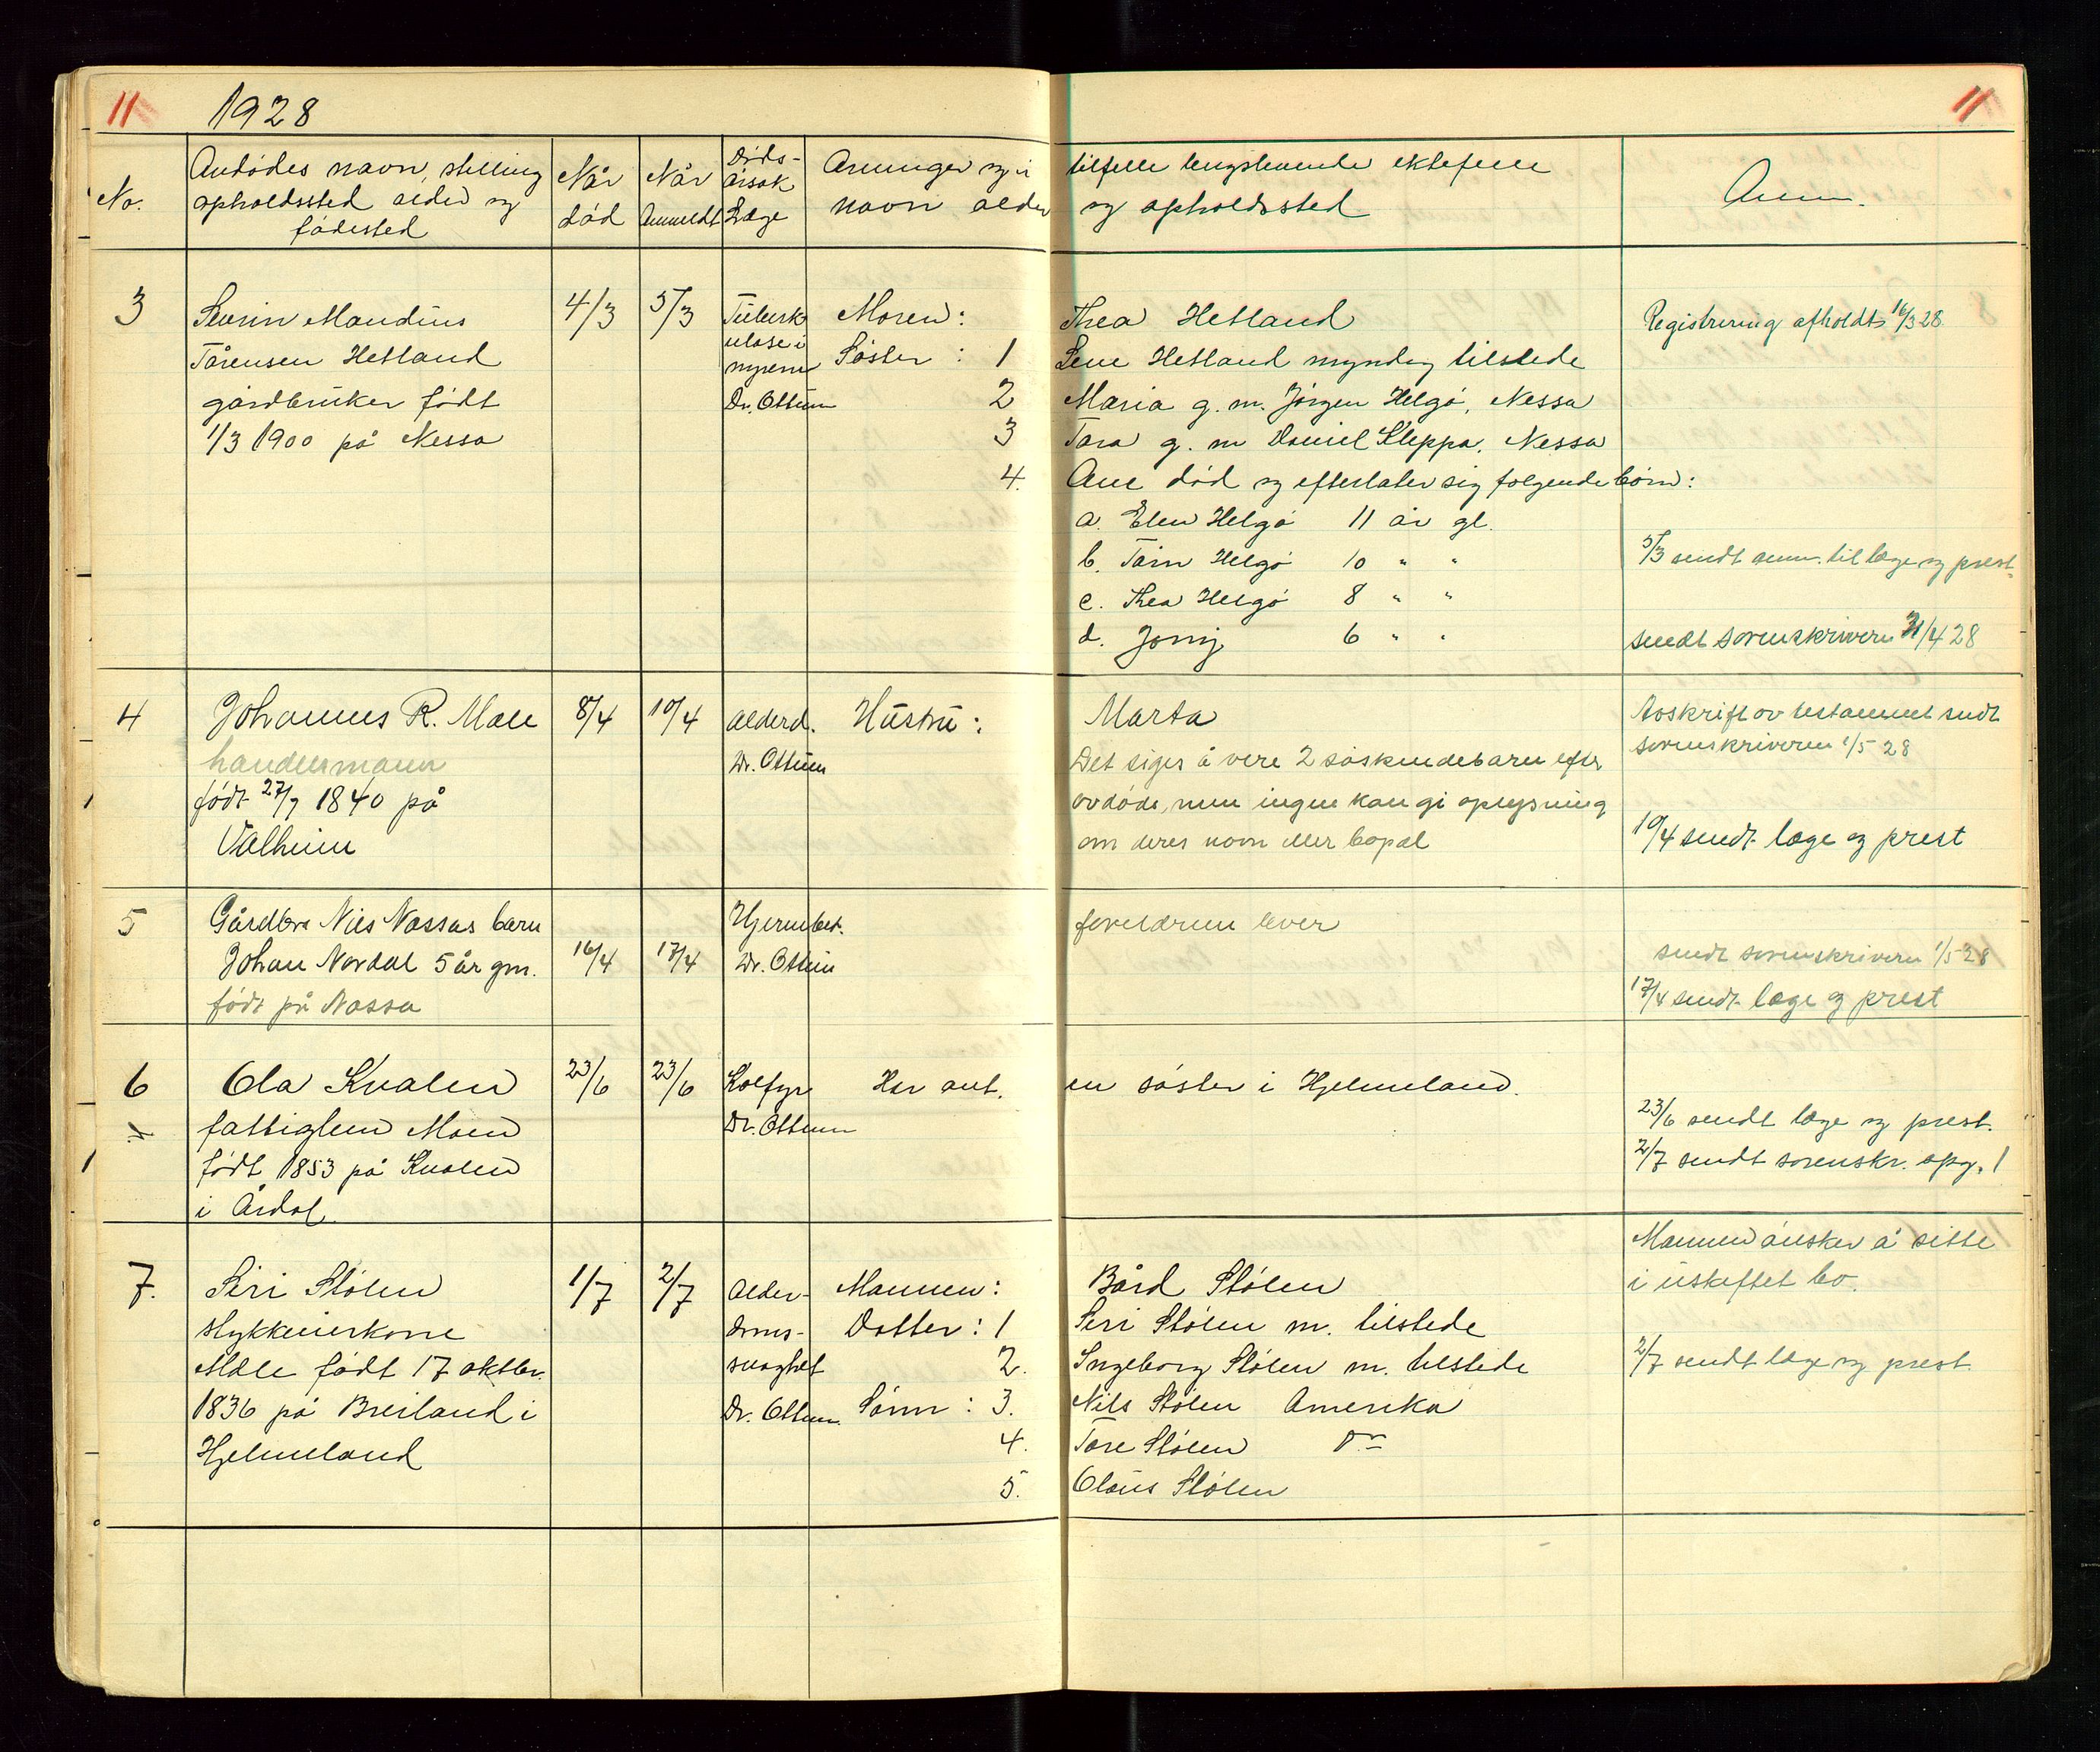 11 1928 11
No. Avdødes navn, stilling opholdssted alder og fødested
Når død
Når Anmeldt
Døds-årsak Læge
Arvinger og i tilfelle lengstlevende ektefelle
navn alder og opholdssted
Anm.
3 Sevrin Maudius 4/3 5/3 Tuberk Moren: Thea Hetland Registrering afholdt 16/3 28
Tårensen Hetland ulose i Søster: 1 Lene Hetland myndig tilstede
gårdbruker født nyrene 2 Maria g. m. Jørgen Helgø, Nessa
1/3 1900 på Nessa Dr. Ottum 3 Tora g. m Daniel Kleppa, Nessa
4. Ane død og efterlater sig følgende børn:
a. Elen Helgø 11 år gl.
b. Tårn Helgø 10 " " 5/3 sendt anm. til læge og prest.
c. Thea Helgø 8 " "
d. Jonny 6 " " sendt sorenskriveren /4 28
4 Johannes R. Mæle 8/4 10/4 Alderd. Hustru: Marta Avskrift av testamnet sendt
handelsmann Dr. Ottum Det siges å vere 2 søskendebarn efter sorenskriveren 1/5 28
født 27/7 1840 på avdøde, men ingen kan gi oplysning
Valheim om deres navn eller bopæl 10/4 sendt læge og prest
5 Gårdbr. Nils Nessas barn Hjernebet. foreldrene lever
Johan Nordal 5 år gm. 16/4 17/4 Dr. Ottum sendt sorenskriveren 1/5-28
født på Nessa 17/4 sendt læge og prest
6 Ola Kvalen 23/6 23/6 Har ant. en søster i Hjelmeland.
fattiglem Moen Dr. Ottum 23/6 sendt læge og prest.
født 1853 på Kvalen 2/7 sendt sorenskr. opg. 1
i Årdal.
Mannen ønsker å sitte
7. Siri Stølen 1/7 2/7 Alder- Mannen: Bård Stølen i uskiftet bo.
stykkeierkone doms- Datter: 1 Siri Stølen m. tilstede
Mæle født 17 oktbr. svaghet 2. Ingeborg Stølen m. tilstede 2/7 sendt læge og prest.
1836 på Breiland i Dr. Ottum Sønn: 3. Nils Stølen Amerika
Hjelmeland 4. Tore Stølen do
5. Olaus Stølen